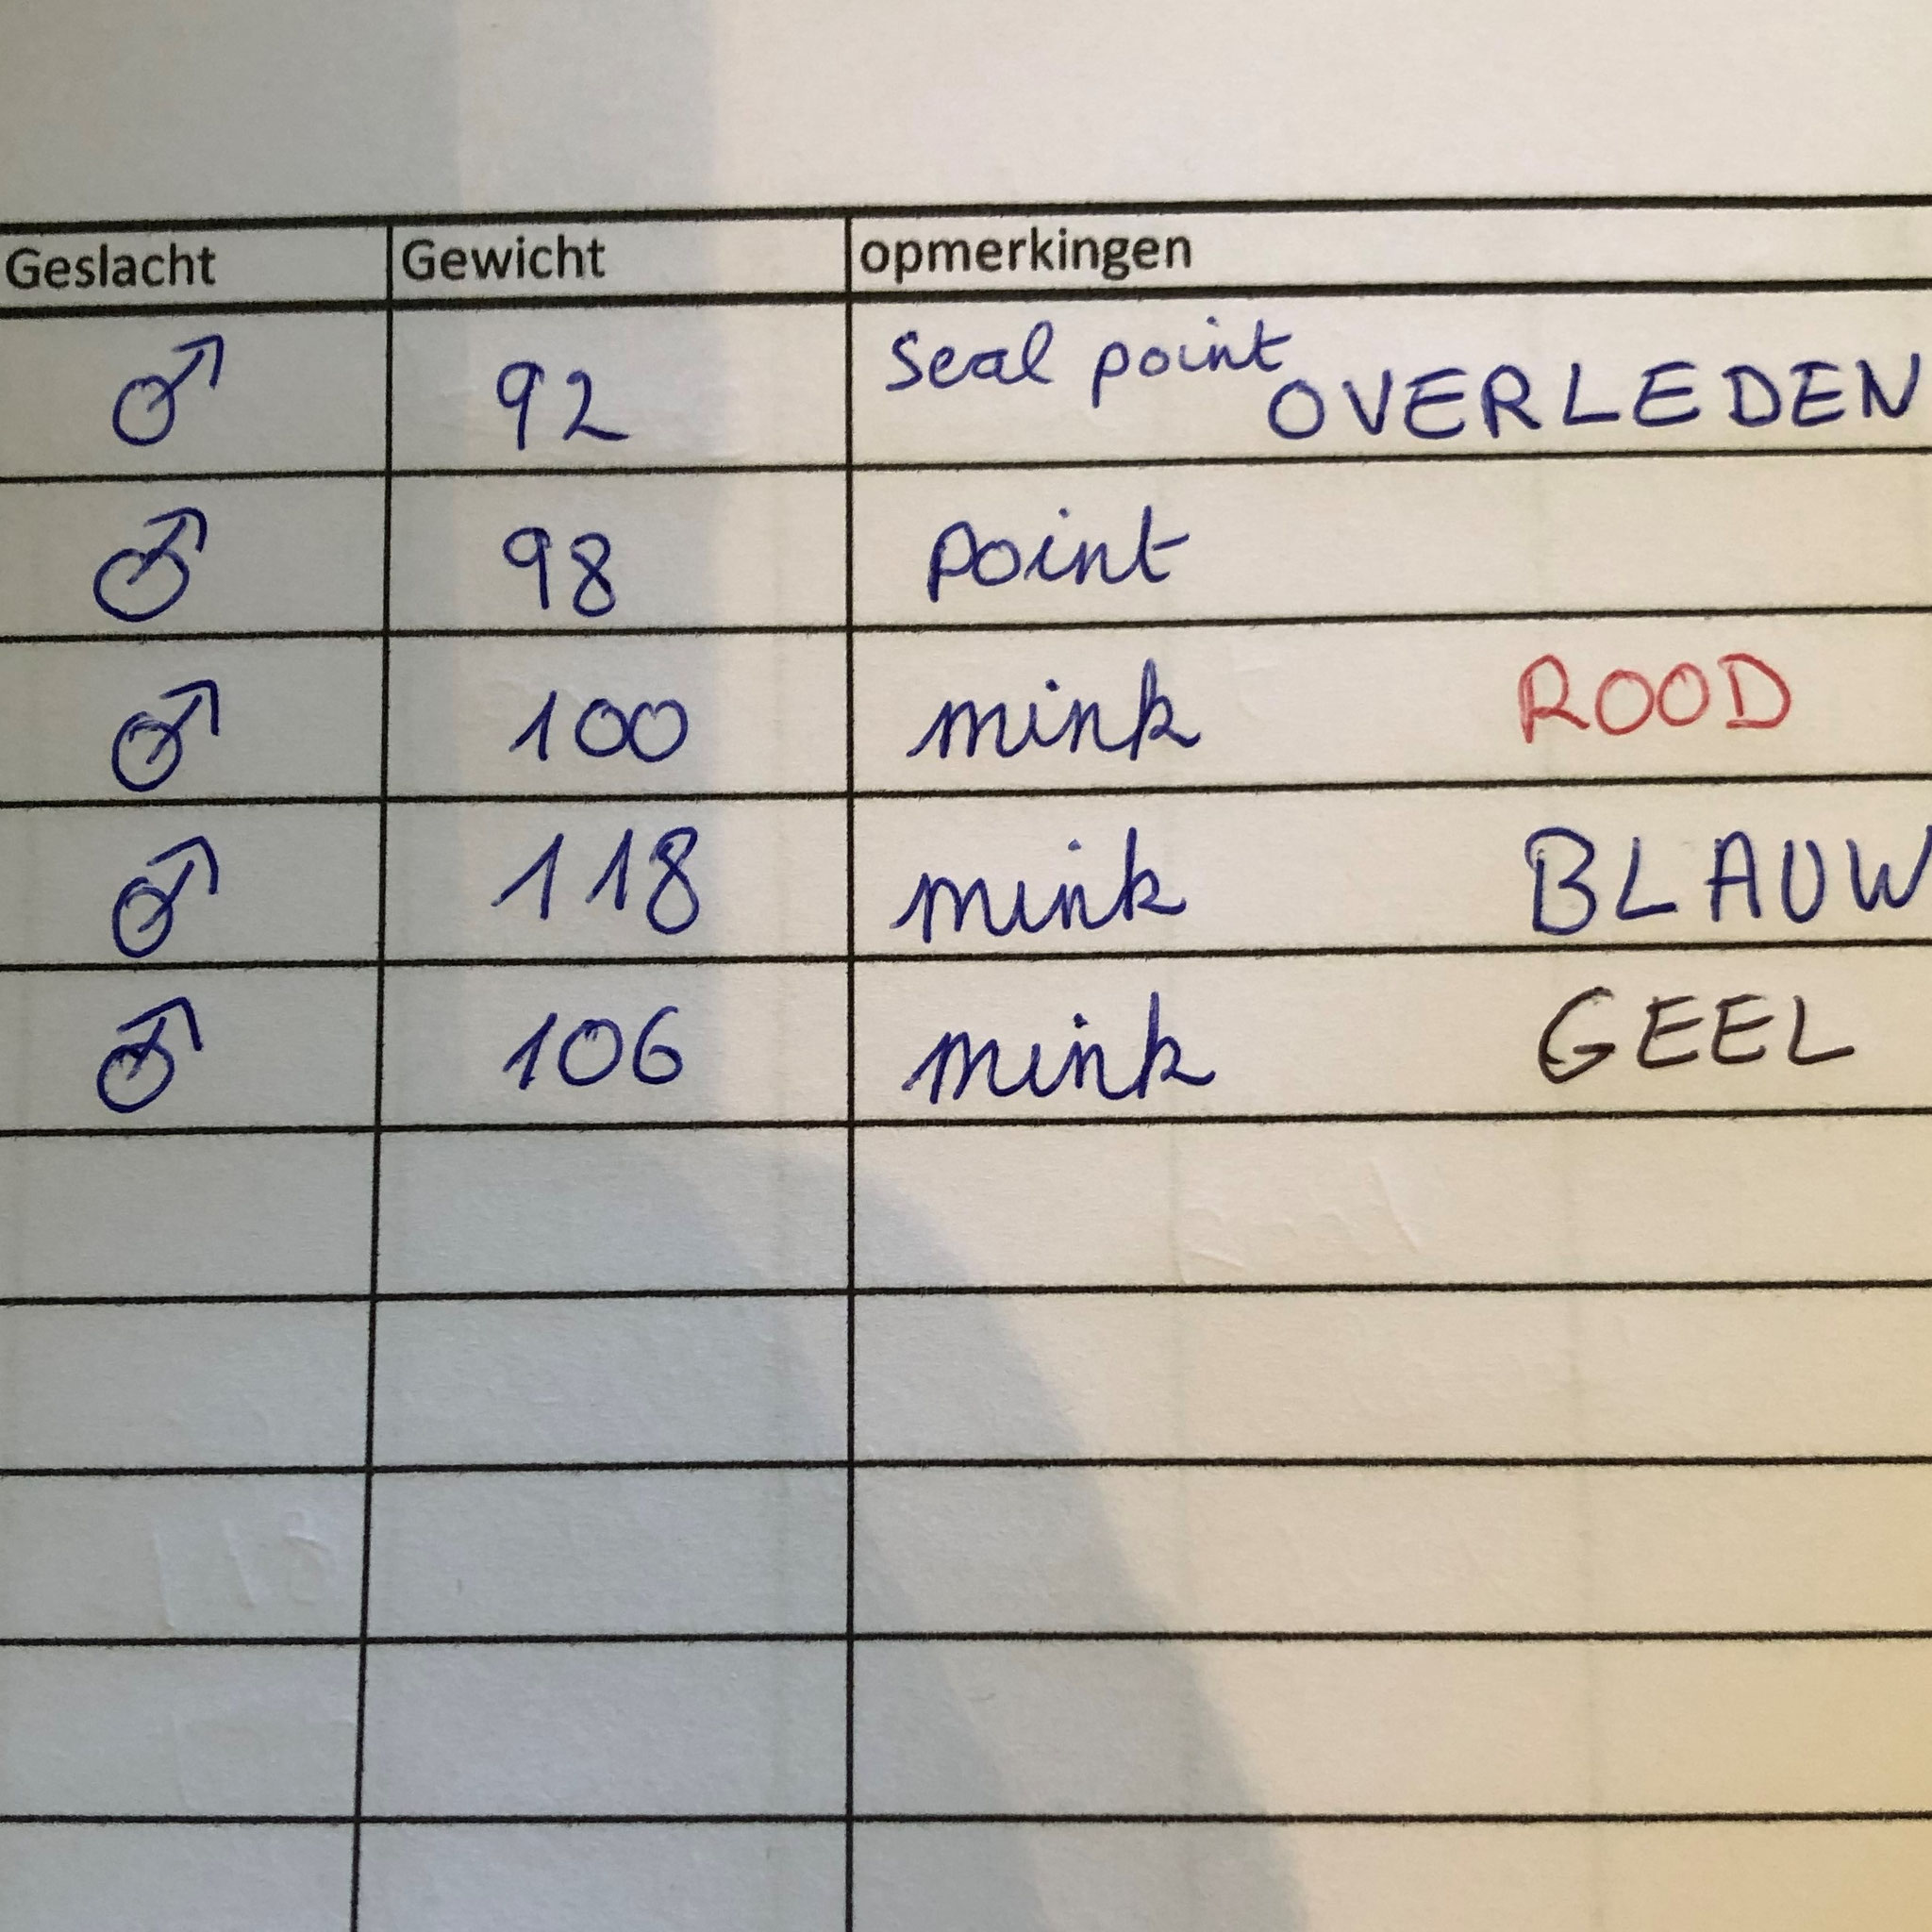 Geslacht Gewicht opmerkingen
♂ 92 seal point OVERLEDEN
♂ 98 point
♂ 100 mink ROOD
♂ 118 mink BLAUW
♂ 106 mink GEEL